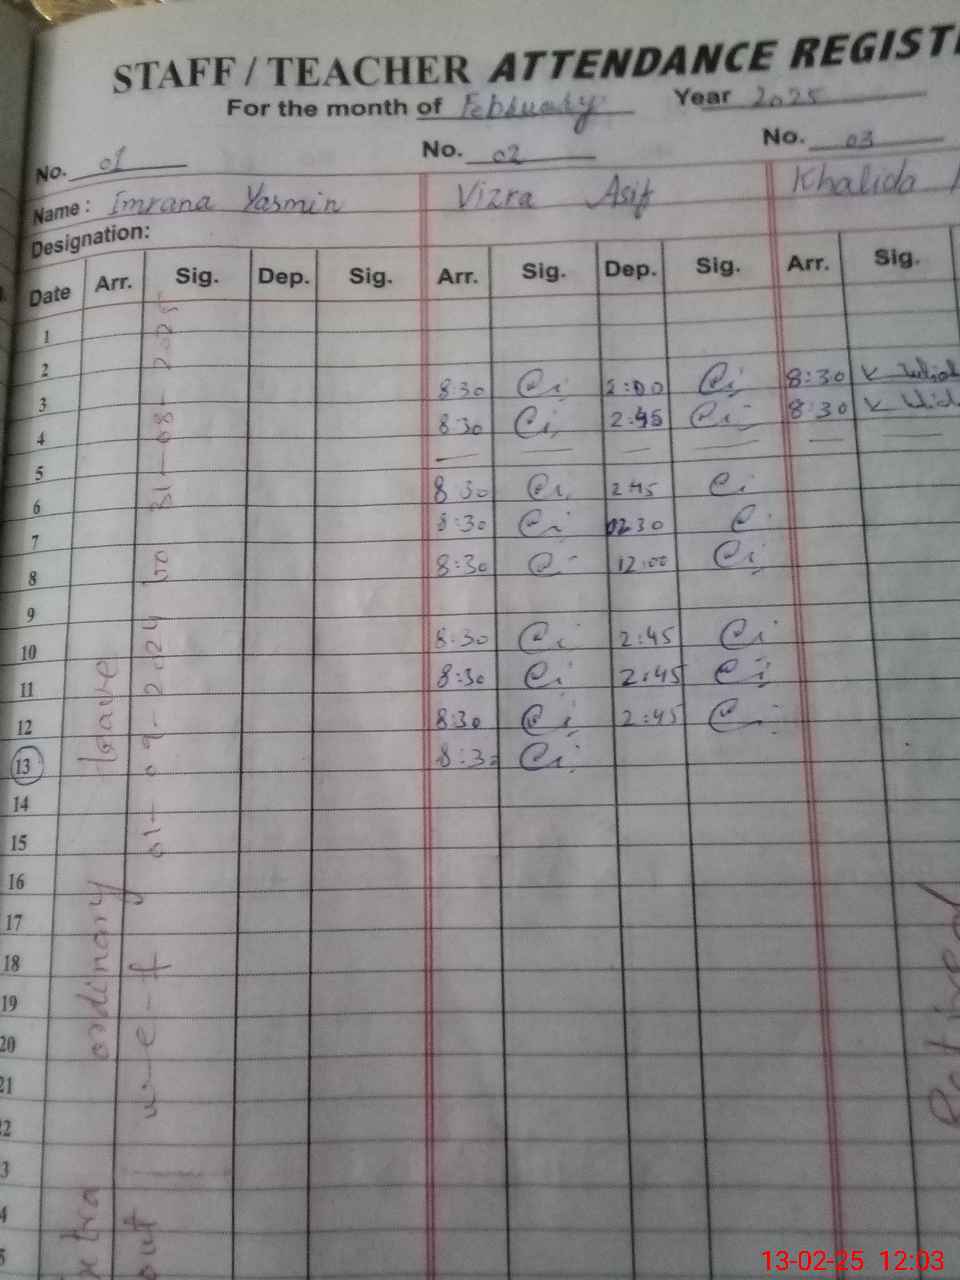 STAFF / TEACHER ATTENDANCE REGIST
For the month of February Year 2025
No. 01 No. 02 No. 03
Name: Imrana Yasmin Vizra Asif Khalida
Designation:
Date Arr. Sig. Dep. Sig. Arr. Sig. Dep. Sig. Arr. Sig.
1
2
3 8:30 2:00 8:30
4 8:30 2:45 8:30
5 — — — — — —
6 8:30 2:45
7 8:30 02:30
8 8:30 12:00
9
10 8:30 2:45
11 8:30 2:45
12 8:30 2:45
13 8:30
14
15
16
17
18
19
20
21
2
3
4
5
xtra ordinary leave
out w-e-f 01-09-2024 to 31-08-2025
Retired
13-02-25 12:03